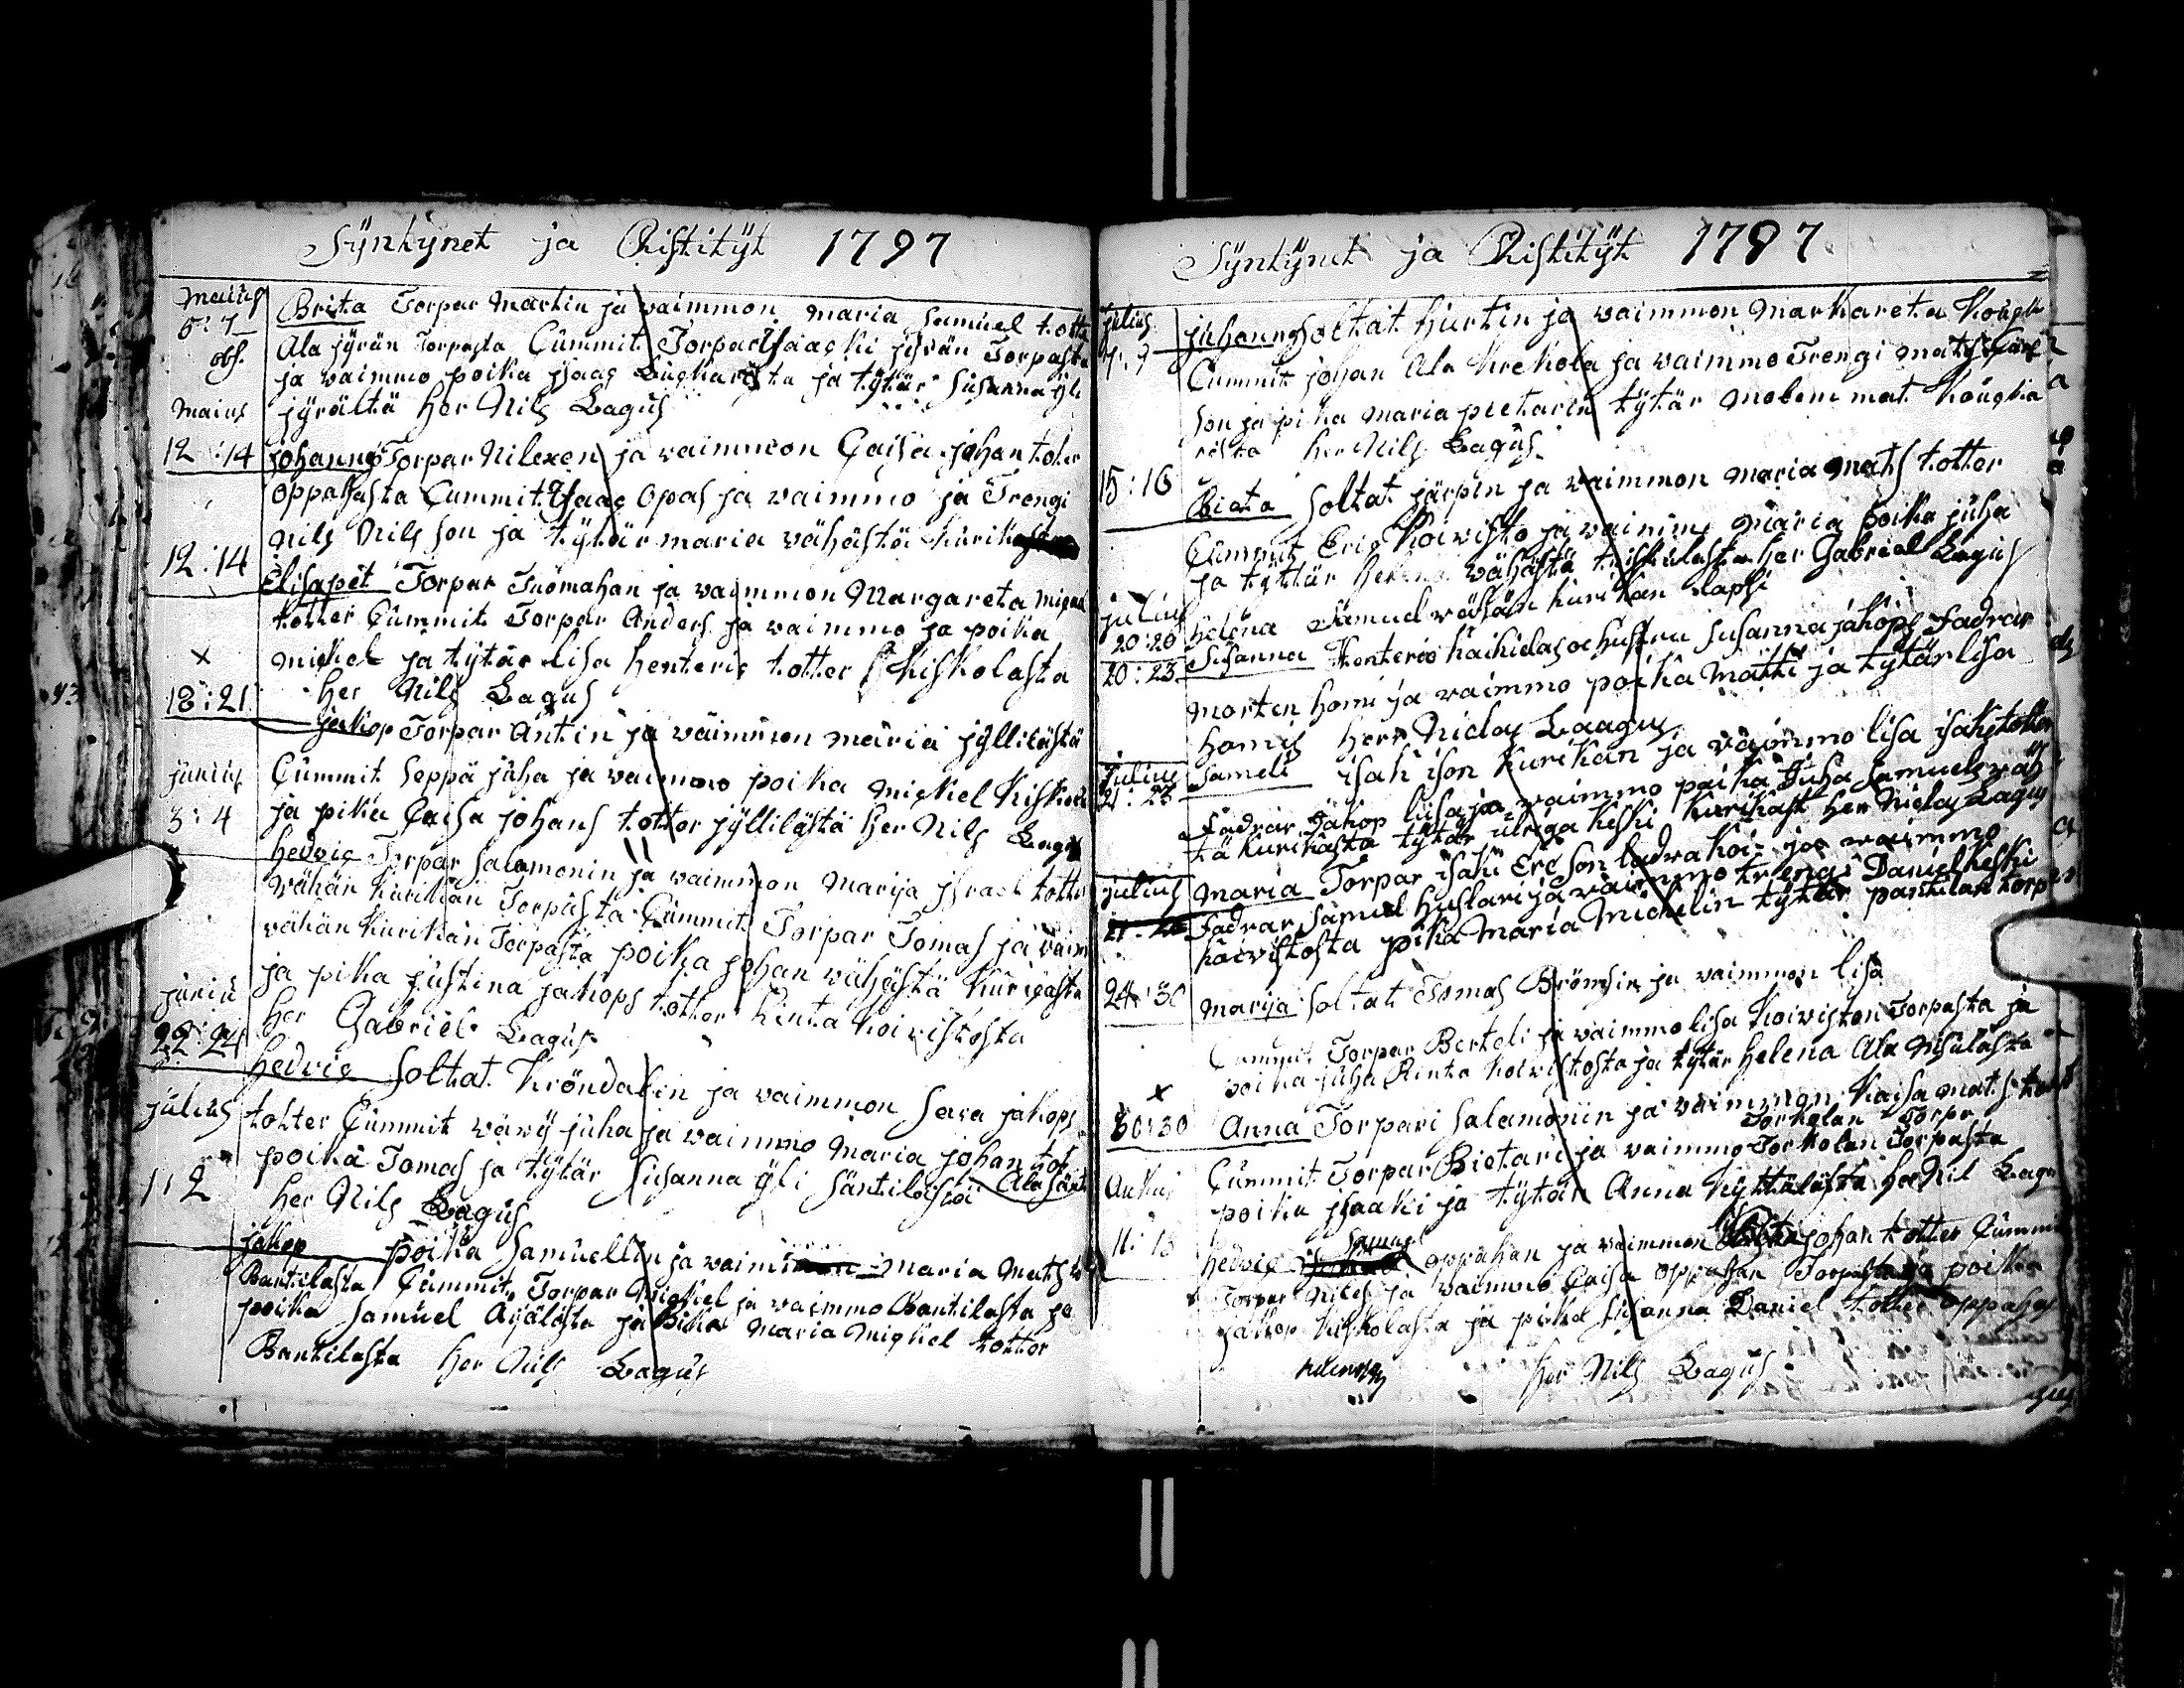 Syntynet ja Ristityt 1797
Maius
5:7
obs.
Brita Torpar Martin ja vaimmon maria Samuel totte
Ala jyrän Torpasta Cummit Torpar Isaacki jyrän Torpasta
ja vaimmo poika jsaac ja tytär Susanna yli
jyrältä her Nils Lagus
Maius
12:14
johannes Torpar Nilexen ja vaimmon Caisa johan toter
oppahasta Cummit Isaac Opas ja vaimmo ja Trengi
Nils Nils son ja tytär maria vähästä
12:14
Elisapet Torpar Tuomahan ja vaimmon Margareta
totter Cummit Torpar Anders ja vaimmo ja poika
x
michel ja tytär lisa henteric totter Kiskolasta
her Nils Lagus
18:21
jakop Torpar Antin ja vaimmon maria jyllilästä
junius
Cummit seppä juha ja vaimmo poika mickel
3:4
ja pika Caisa johans totter jyllilästä her Nils Lagus
hedvig Torpar Salomonin ja vaimmon Marija jsrael totter
vähän Kurikan Torpasta Cummit Torpar Tomas ja vaim
vähän Kurikan Torpasta poika johan vähästä Kuricasta
juniu
ja pika justina jakops totter Rinta Koivistosta
her Gabriel Lagus
22:24
hedvig soltat Kröndalin ja vaimmon Sara jakops
julius
totter Cummit väwy juha ja vaimmo Maria johan tot
poika Tomas ja tytär Susanna yli Säntilästä Ala sänt
1:2
her Nils Lagus
jakop poika Samuellin ja vaimmon maria Mats
Bantilasta Cummit Torpar Mickel ja vaimmo Bantilasta ja
poika Samuel Ajälästä ja Pika Maria Mickel totter
Bantilasta her Nils Lagus
Syntynet ja Ristityt 1797
julius
7:9
juhannes soltat hurtin ja vaimmon Markareta
Cummit johan Ala Krekola ja vaimmo Trengi mats
son ja pika maria pietarin tytär molemmat
her Nils Lagus
15:16
Biata soltat järpin ja vaimmon maria Mats totter
Cummit Eric Koivisto ja vaimmo maria poika juha
ja tyttär helena vähästä her Gabriel Lagus
julius
20:20
helena Samuel vähän kurikan lapsi
20:23
Susanna Henteric Susanna jakops Fadrar
Morten homi ja vaimmo poika Matti ja tytär lisa
homis herr Niclas Laagus
julius
21:23
Sameli isak ison Kurikan ja vaimmo lisa isaks totter
Fadrar Jakop lusa ja vaimmo poika Juha Samuels väh
tä kurikasta tytär ulrica keski kurikast her Niclas Lagus
julius
maria Torpar isaki Ericson ladva Koi ja vaimmo
Fadrar Samuel huslari ja vaimmo trengi Daniel keski
koivistosta pika Maria Michelin tytär pantilan torp
24:30
Marija soltat Tomas Brömsin ja vaimmon lisa
Cummit Torpar Berteli ja vaimmo lisa Koiviston Torpasta ja
poika juha Rinta koivistosta ja tytär helena Ala Nisulasta
x
30:30
Anna Torpari Salamoniin ja vaimmon Kaisa mats
Torkolan Torpr
Cummit Torpar Bietari ja vaimmo Torkolan Torpasta
poika jsaaki ja tytär Anna Kyttälästä her Nil Lagus
hedvig Samuel oppahan ja vaimmon johan totter Cummi
Torpar Nils ja vaimmo Caisa oppahan Torpasta ja poika
jakop Kiskolasta ja pika Susanna Daniel totter oppahas
her Nils Lagus